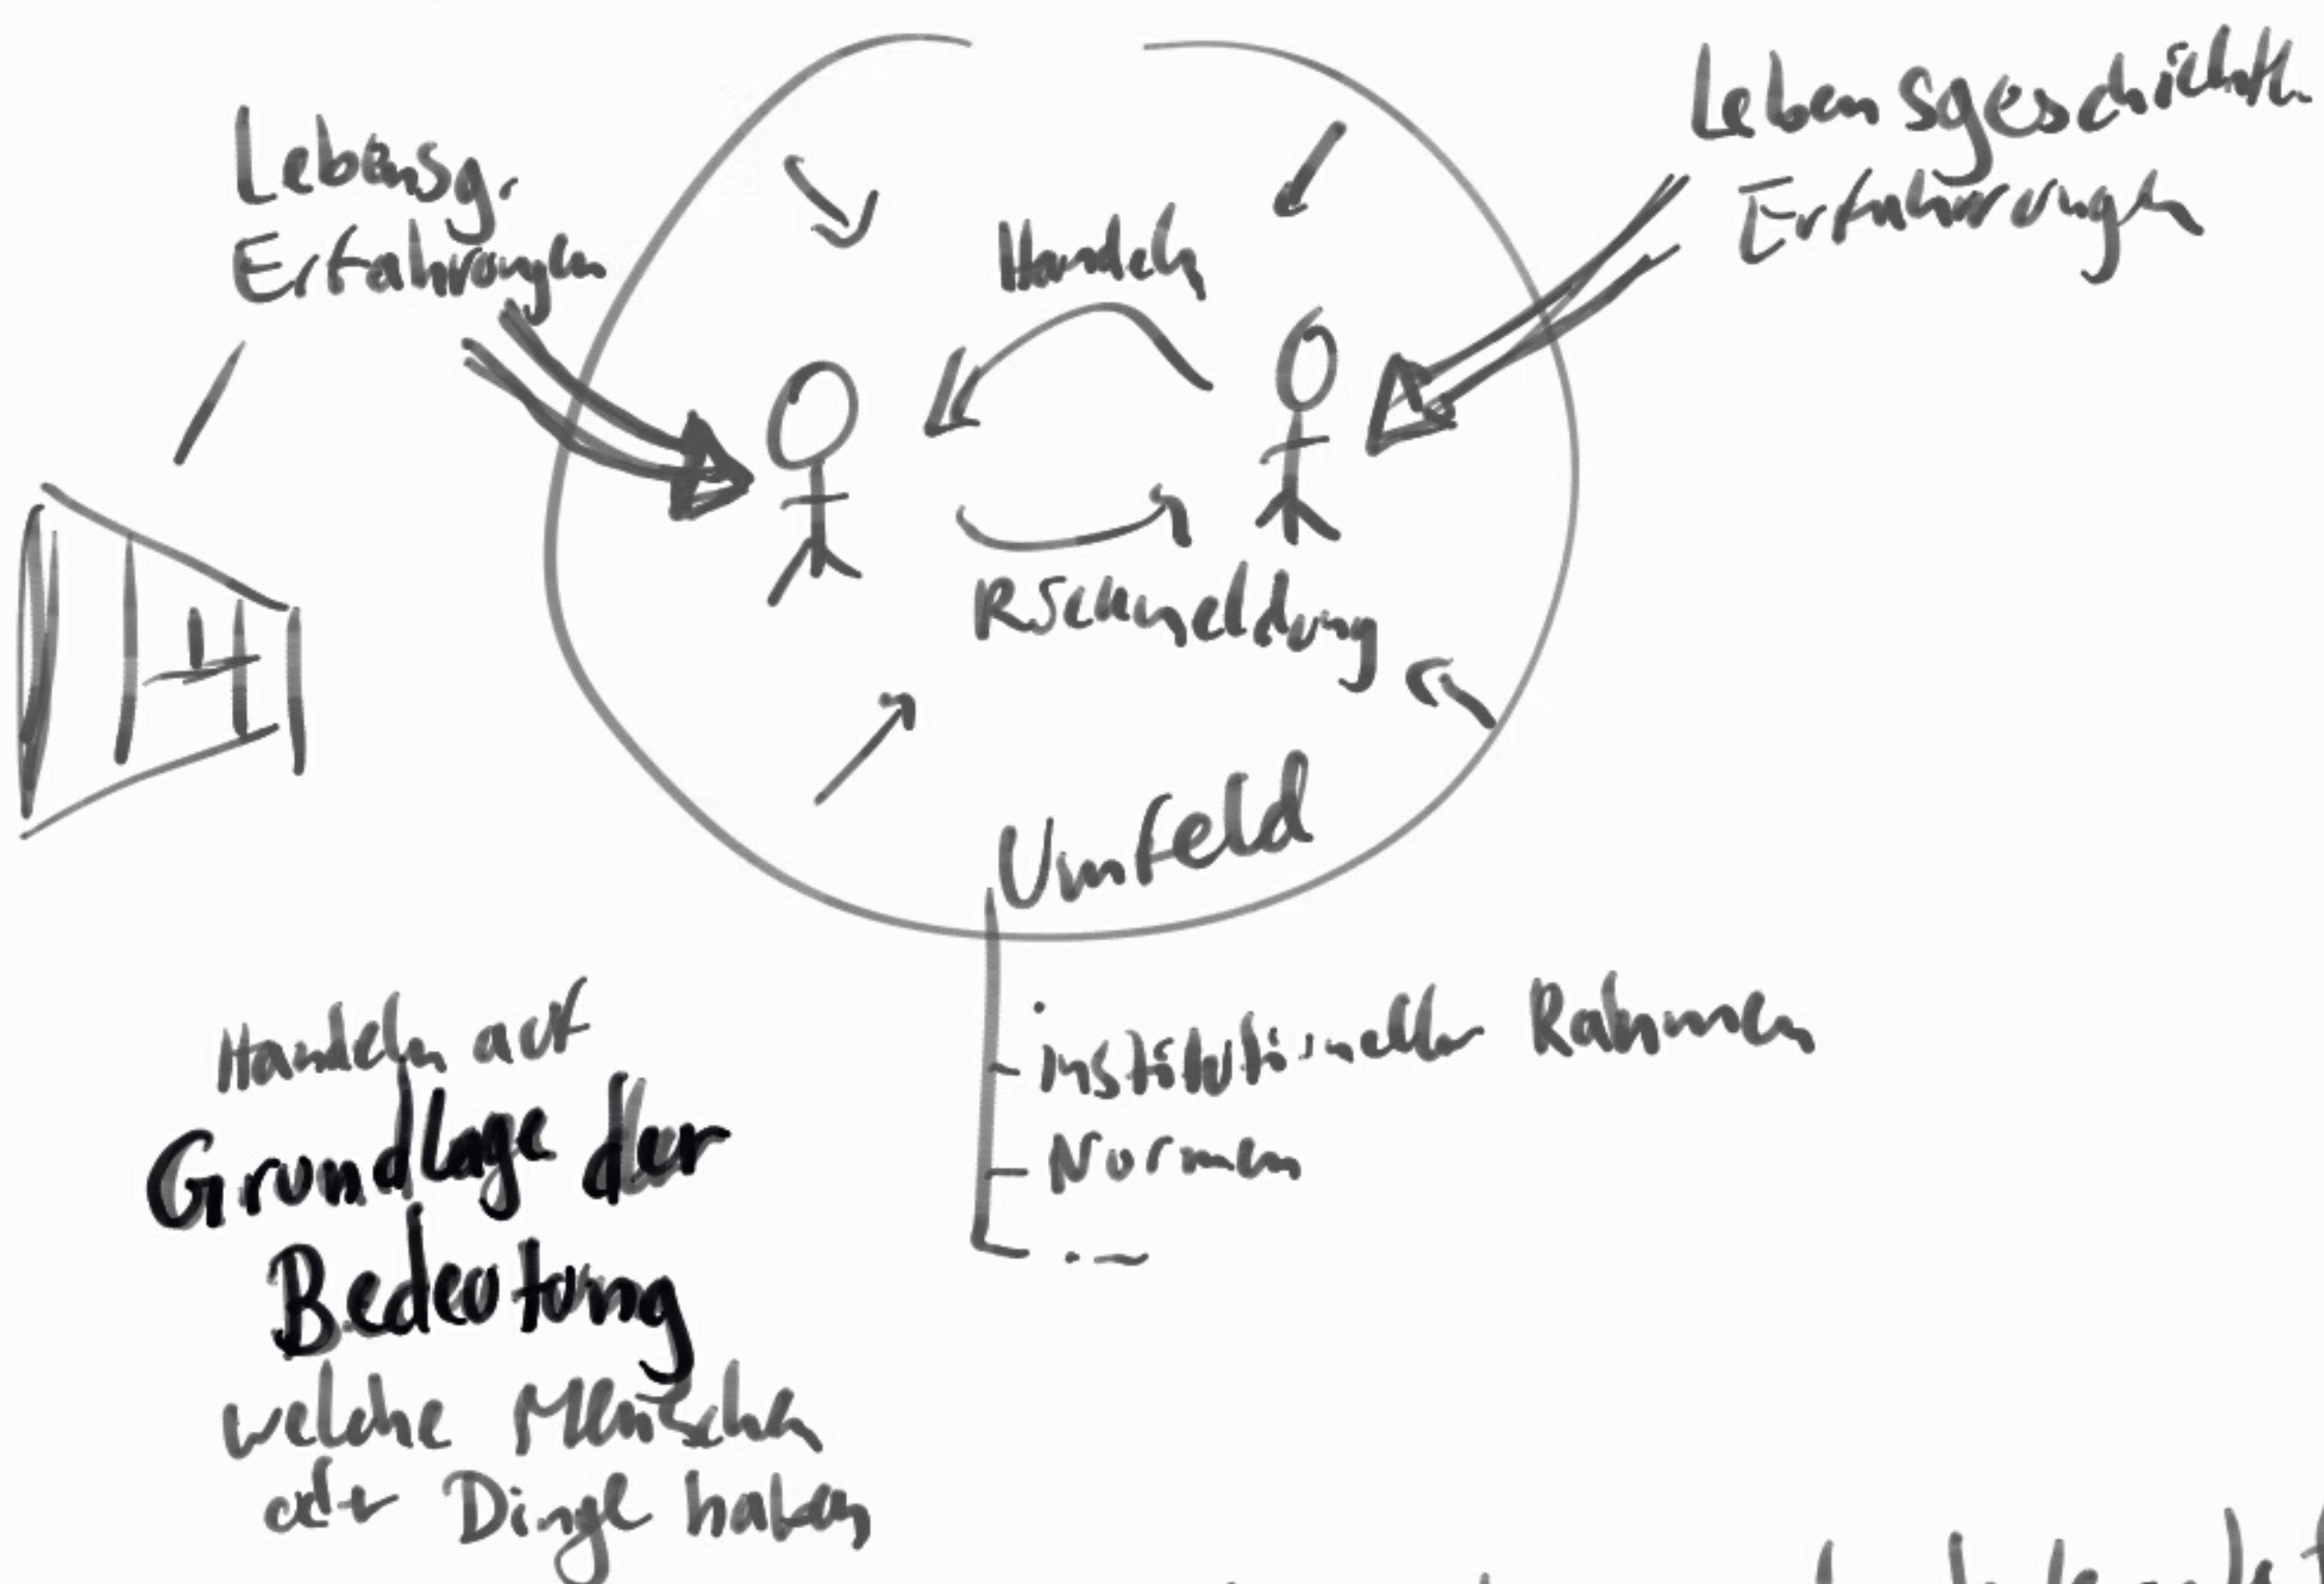 Lebensg.
Erfahrungen
Lebensgeschichtl.
Erfahrungen
Handeln
Rückmeldung
Umfeld
- institutioneller Rahmen
- Normen
- ...
Handeln auf
Grundlage der
Bedeutung
welche Menschen
oder Dinge haben